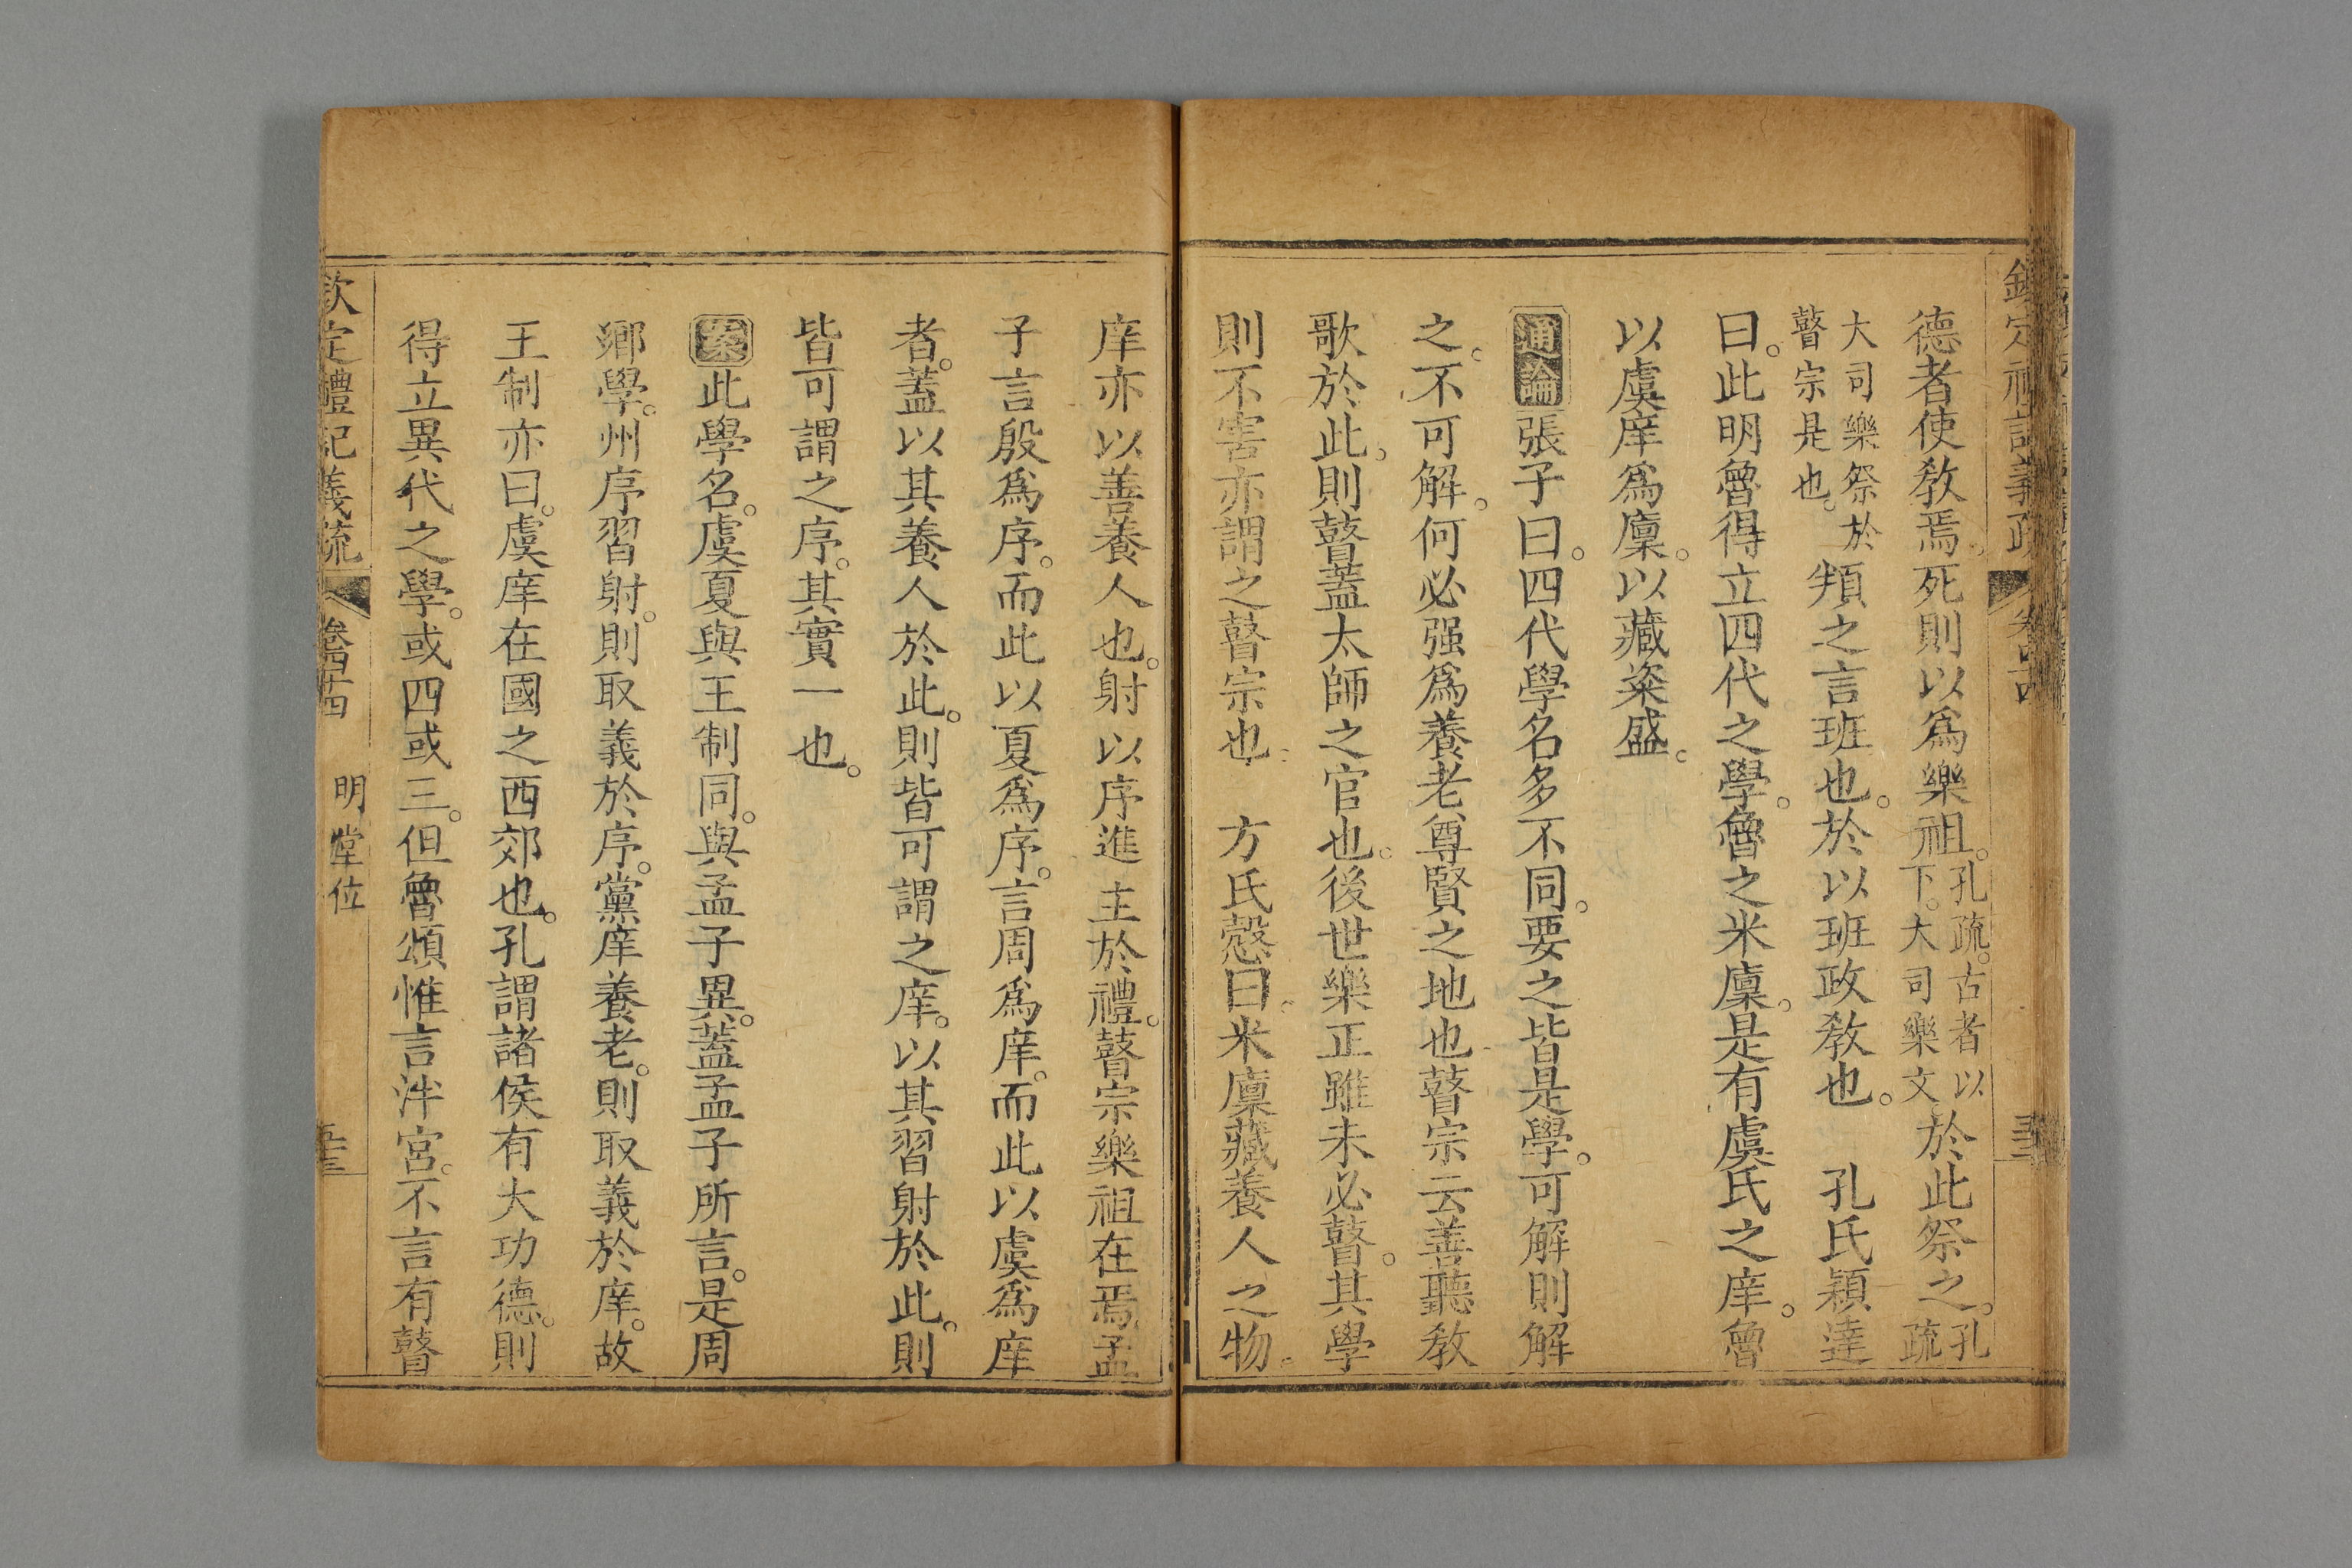 德者使敎焉死則以爲樂祖。孔疏。古者以下。大司樂文於此祭之。孔疏
大司樂祭於瞽宗是也。頖之言班也。於以班政敎也。 孔氏穎達
曰。此明魯得立四代之學。魯之米廩。是有虞氏之庠。魯
以虞庠爲廩。以藏粢盛。
通論張子曰。四代學名多不同。要之皆是學。可解則解
之。不可解。何必强爲養老尊賢之地也瞽宗云善聽敎
歌於此。則瞽蓋太師之官也。後世樂正雖未必瞽。其學
則不害亦謂之瞽宗也 方氏慤曰。米廩藏養人之物。
庠亦以善養人也。射以序進主於禮。瞽宗樂祖在焉孟
子言殷爲序。而此以夏爲序。言周爲庠。而此以虞爲庠
者。蓋以其養人於此。則皆可謂之庠。以其習射於此。則
皆可謂之序。其實一也。
案此學名。虞夏與王制同。與孟子異。蓋孟子所言。是周
鄉學。州序習射。則取義於序。黨庠養老。則取義於庠。故
王制亦曰。虞庠在國之西郊也。孔謂諸侯有大功德。則
得立異代之學。或四或三。但魯頌惟言泮宮。不言有瞽
欽定禮記義疏 卷四十四 明堂位 五十三